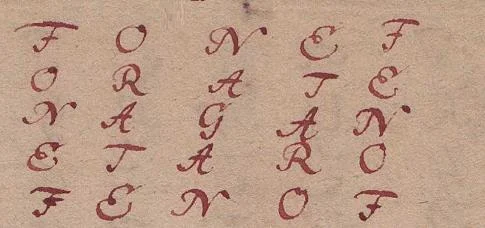 F O N E F
O R A T E
N A G A N
E T A R O
F E N O F